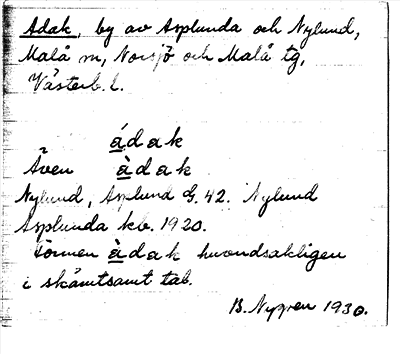 Adak, by av Asplunda och Nylund,
Malå sn, Norsjö och Malå tg,
Västerb. l.
ádak
Även àdak
Nylund, Asplund G. 42. Nylund
Asplunda kb. 1920.
Formen àdak huvudsakligen
i skämtsamt tal.
B. Nygren 1930.